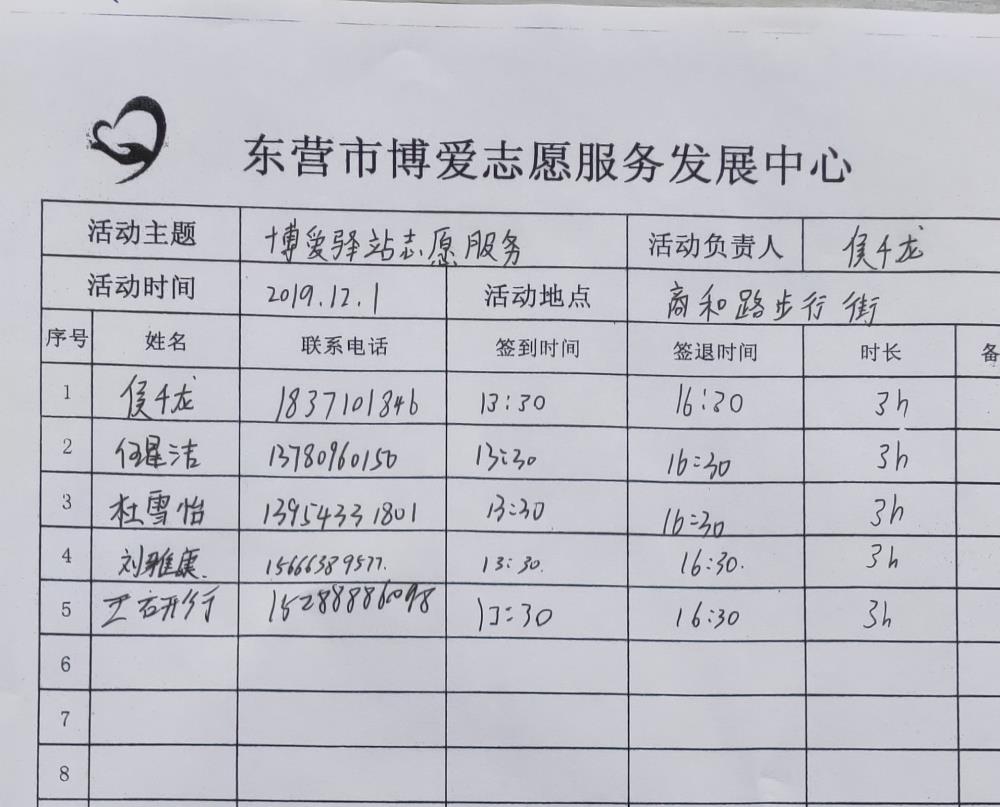 东营市博爱志愿服务发展中心
活动主题 博爱驿站志愿服务 活动负责人 侯千龙
活动时间 2019.12.1 活动地点 商和路步行街
序号 姓名 联系电话 签到时间 签退时间 时长 备
1 侯千龙 1837101846 13:30 16:30 3h
2 任星洁 13780960150 13:30 16:30 3h
3 杜雪怡 13954331801 13:30 16:30 3h
4 刘雅康. 15666389577. 13:30. 16:30. 3h
5 15288886098 13:30 16:30 3h
6
7
8